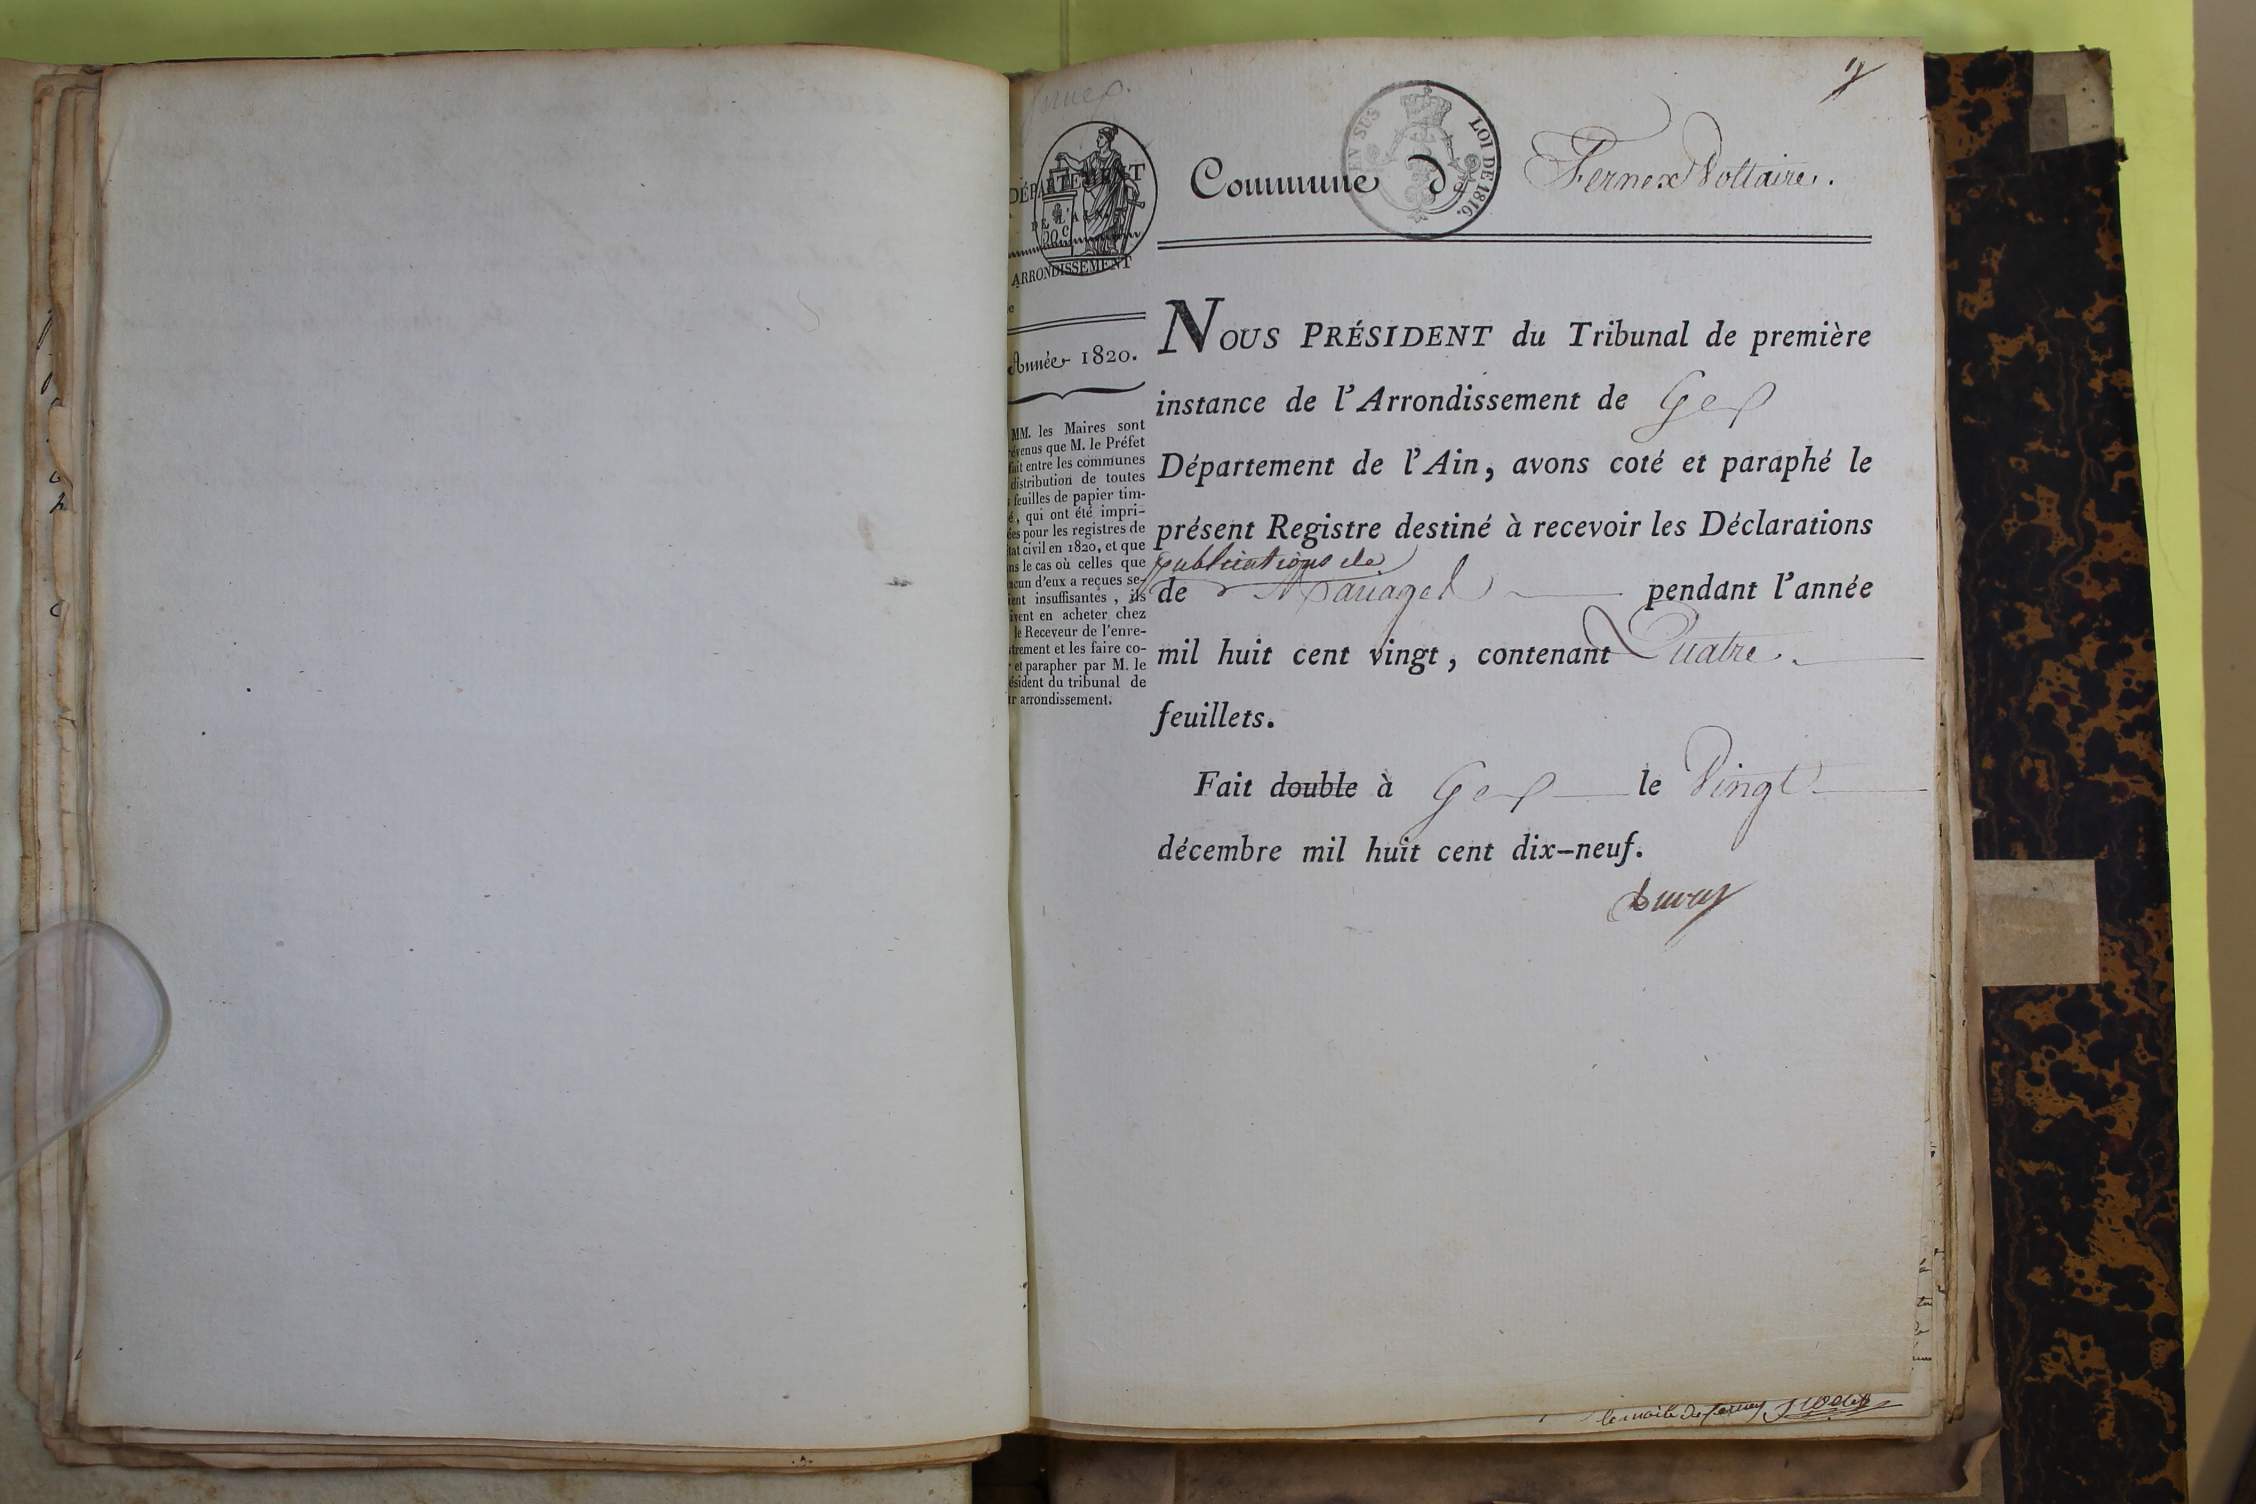 DÉPARTEMENT
DE L'AIN
20 C
ARRONDISSEMENT
Année 1820.
MM. les Maires sont
évenus que M. le Préfet
fait entre les communes
distribution de toutes
feuilles de papier tim-
é, qui ont été impri-
ées pour les registres de
tat civil en 1820, et que
ns le cas où celles que
acun d'eux a reçues se-
ient insuffisantes, ils
ivent en acheter chez
le Receveur de l'enre-
trement et les faire co-
r et parapher par M. le
ésident du tribunal de
ur arrondissement.
EN SUS LOI DE 1816.
Commune d Fernex Voltaire.
NOUS PRÉSIDENT du Tribunal de première
instance de l'Arrondissement de Gex
Département de l'Ain, avons coté et paraphé le
présent Registre destiné à recevoir les Déclarations
publications de
de Mariages pendant l'année
mil huit cent vingt, contenant Quatre.
feuillets.
Fait double à Gex le Vingt
décembre mil huit cent dix-neuf.
le maire de Ferney